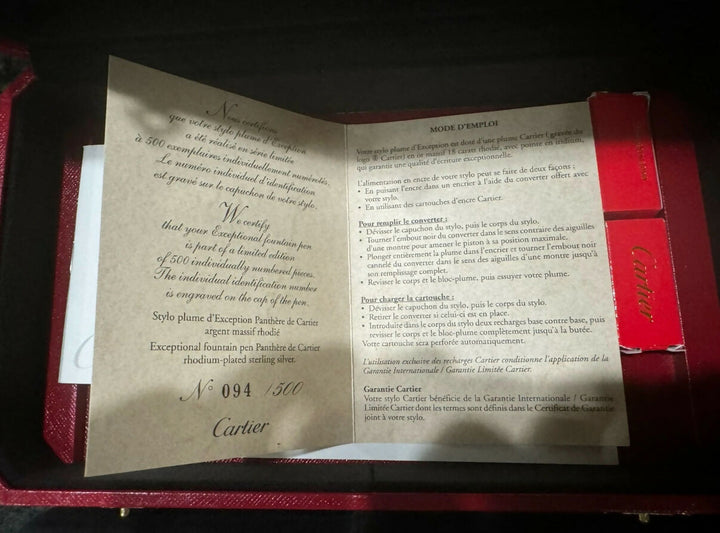 Nous certifions
que votre stylo plume d'Exception
a été réalisé en série limitée
à 500 exemplaires individuellement numérotés.
Le numéro individuel d'identification
est gravé sur le capuchon de votre stylo.
We certify
that your Exceptional fountain pen
is part of a limited edition
of 500 individually numbered pieces.
The individual identification number
is engraved on the cap of the pen.
Stylo plume d'Exception Panthère de Cartier
argent massif rhodié
Exceptional fountain pen Panthère de Cartier
rhodium-plated sterling silver.
N° 094 /500
Cartier
MODE D'EMPLOI
Votre stylo plume d'Exception est doté d'une plume Cartier (gravée du
logo ® Cartier) en or massif 18 carats rhodié, avec pointe en iridium,
qui garantie une qualité d'écriture exceptionnelle.
L'alimentation en encre de votre stylo peut se faire de deux façons :
• En puisant l'encre dans un encrier à l'aide du converter offert avec
votre stylo.
• En utilisant des cartouches d'encre Cartier.
Pour remplir le converter :
• Dévisser le capuchon du stylo, puis le corps du stylo.
• Tourner l'embout noir du converter dans le sens contraire des aiguilles
d'une montre pour amener le piston à sa position maximale.
• Plonger entièrement la plume dans l'encrier et tournez l'embout noir
cannelé du converter dans le sens des aiguilles d'une montre jusqu'à
son remplissage complet.
• Revisser le corps et le bloc-plume, puis essuyer votre plume.
Pour charger la cartouche :
• Dévisser le capuchon du stylo, puis le corps du stylo.
• Retirer le converter si celui-ci est en place.
• Introduire dans le corps du stylo deux recharges base contre base, puis
revisser le corps et le bloc-plume complètement jusqu'à la butée.
Votre cartouche sera perforée automatiquement.
L'utilisation exclusive des recharges Cartier conditionne l'application de la
Garantie Internationale / Garantie Limitée Cartier.
Garantie Cartier
Votre stylo Cartier bénéficie de la Garantie Internationale / Garantie
Limitée Cartier dont les termes sont définis dans le Certificat de Garantie
joint à votre stylo.
Cartier